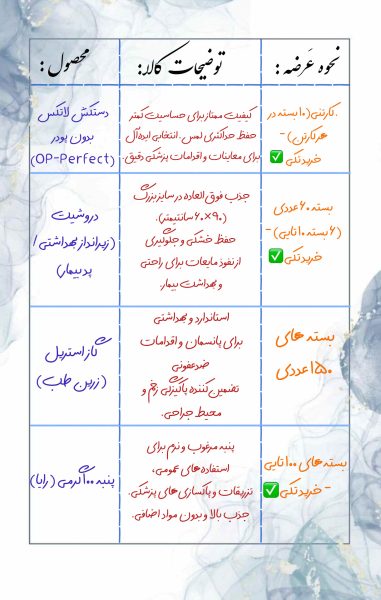 محصول :
توضیحات کالا:
نحوه عَرضه :
دستکش لاتکس
بدون پودر
(OP-Perfect)
کیفیت ممتاز برای حساسیت کمتر
حفظ حداکثری لمس. انتخابی ایده‌آل
برای معاینات و اقدامات پزشکی دقیق.
.کارتنی(۱۰ بسته در
هر کارتن) -
خرید تکی ✅
دروشیت
(زیرانداز بهداشتی/
پد بیمار)
جذب فوق العاده در سایز بزرگ
(۹۰×۶۰ سانتیمتر).
حفظ خشکی و جلوگیری
از نفوذ مایعات برای راحتی
و بهداشت بیمار.
بسته ۶۰ عددی
(۶ بسته ۱۰ تایی) -
خرید تکی ✅
گاز استریل
(زرین طب)
استاندارد و بهداشتی
برای پانسمان و اقدامات
ضدعفونی
تضمین کننده پاکیزگی زخم و
محیط جراحی.
بسته های
۱۵۰ عددی
پنبه ۱۰۰ گرمی (رایا)
پنبه مرغوب و نرم برای
استفاده های عمومی،
تزریقات و پاکسازی های پزشکی.
جذب بالا و بدون مواد اضافی.
بسته های ۱۰۰ تایی
- خرید تکی ✅